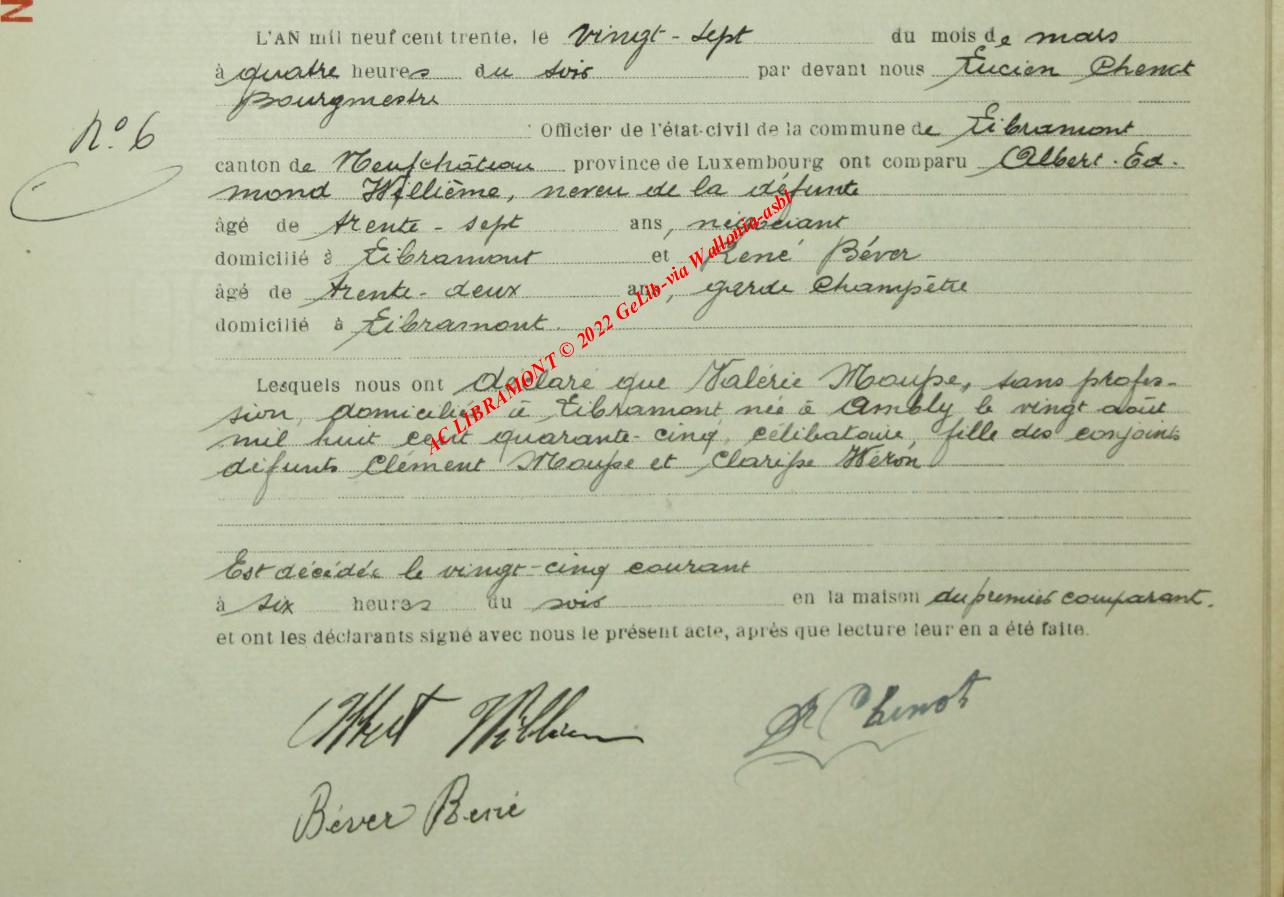 L'AN mil neuf cent trente, le vingt-sept du mois de mars
à quatre heures du soir par devant nous Lucien Chenot
Bourgmestre
N° 6
Officier de l'état-civil de la commune de Libramont
canton de Neufchâteau province de Luxembourg ont comparu Albert-Ed-
mond Willième, neveu de la défunte
âgé de trente-sept ans, négociant
domicilié à Libramont et René Béver
âgé de trente-deux ans, garde champêtre
domicilié à Libramont.
Lesquels nous ont déclaré que Valérie Mousse, sans profes-
sion, domiciliée à Libramont née à Ambly le vingt août
mil huit cent quarante-cinq, célibataire, fille des conjoints
défunts Clément Mousse et Clarisse Héron
Est décédée le vingt-cinq courant
à six heures du soir en la maison du premier comparant.
et ont les déclarants signé avec nous le présent acte, après que lecture leur en a été faite.
Albert Willième
Chenot
Béver René
AC LIBRAMONT © 2022 GeLib-via Wallonia-asbl
N